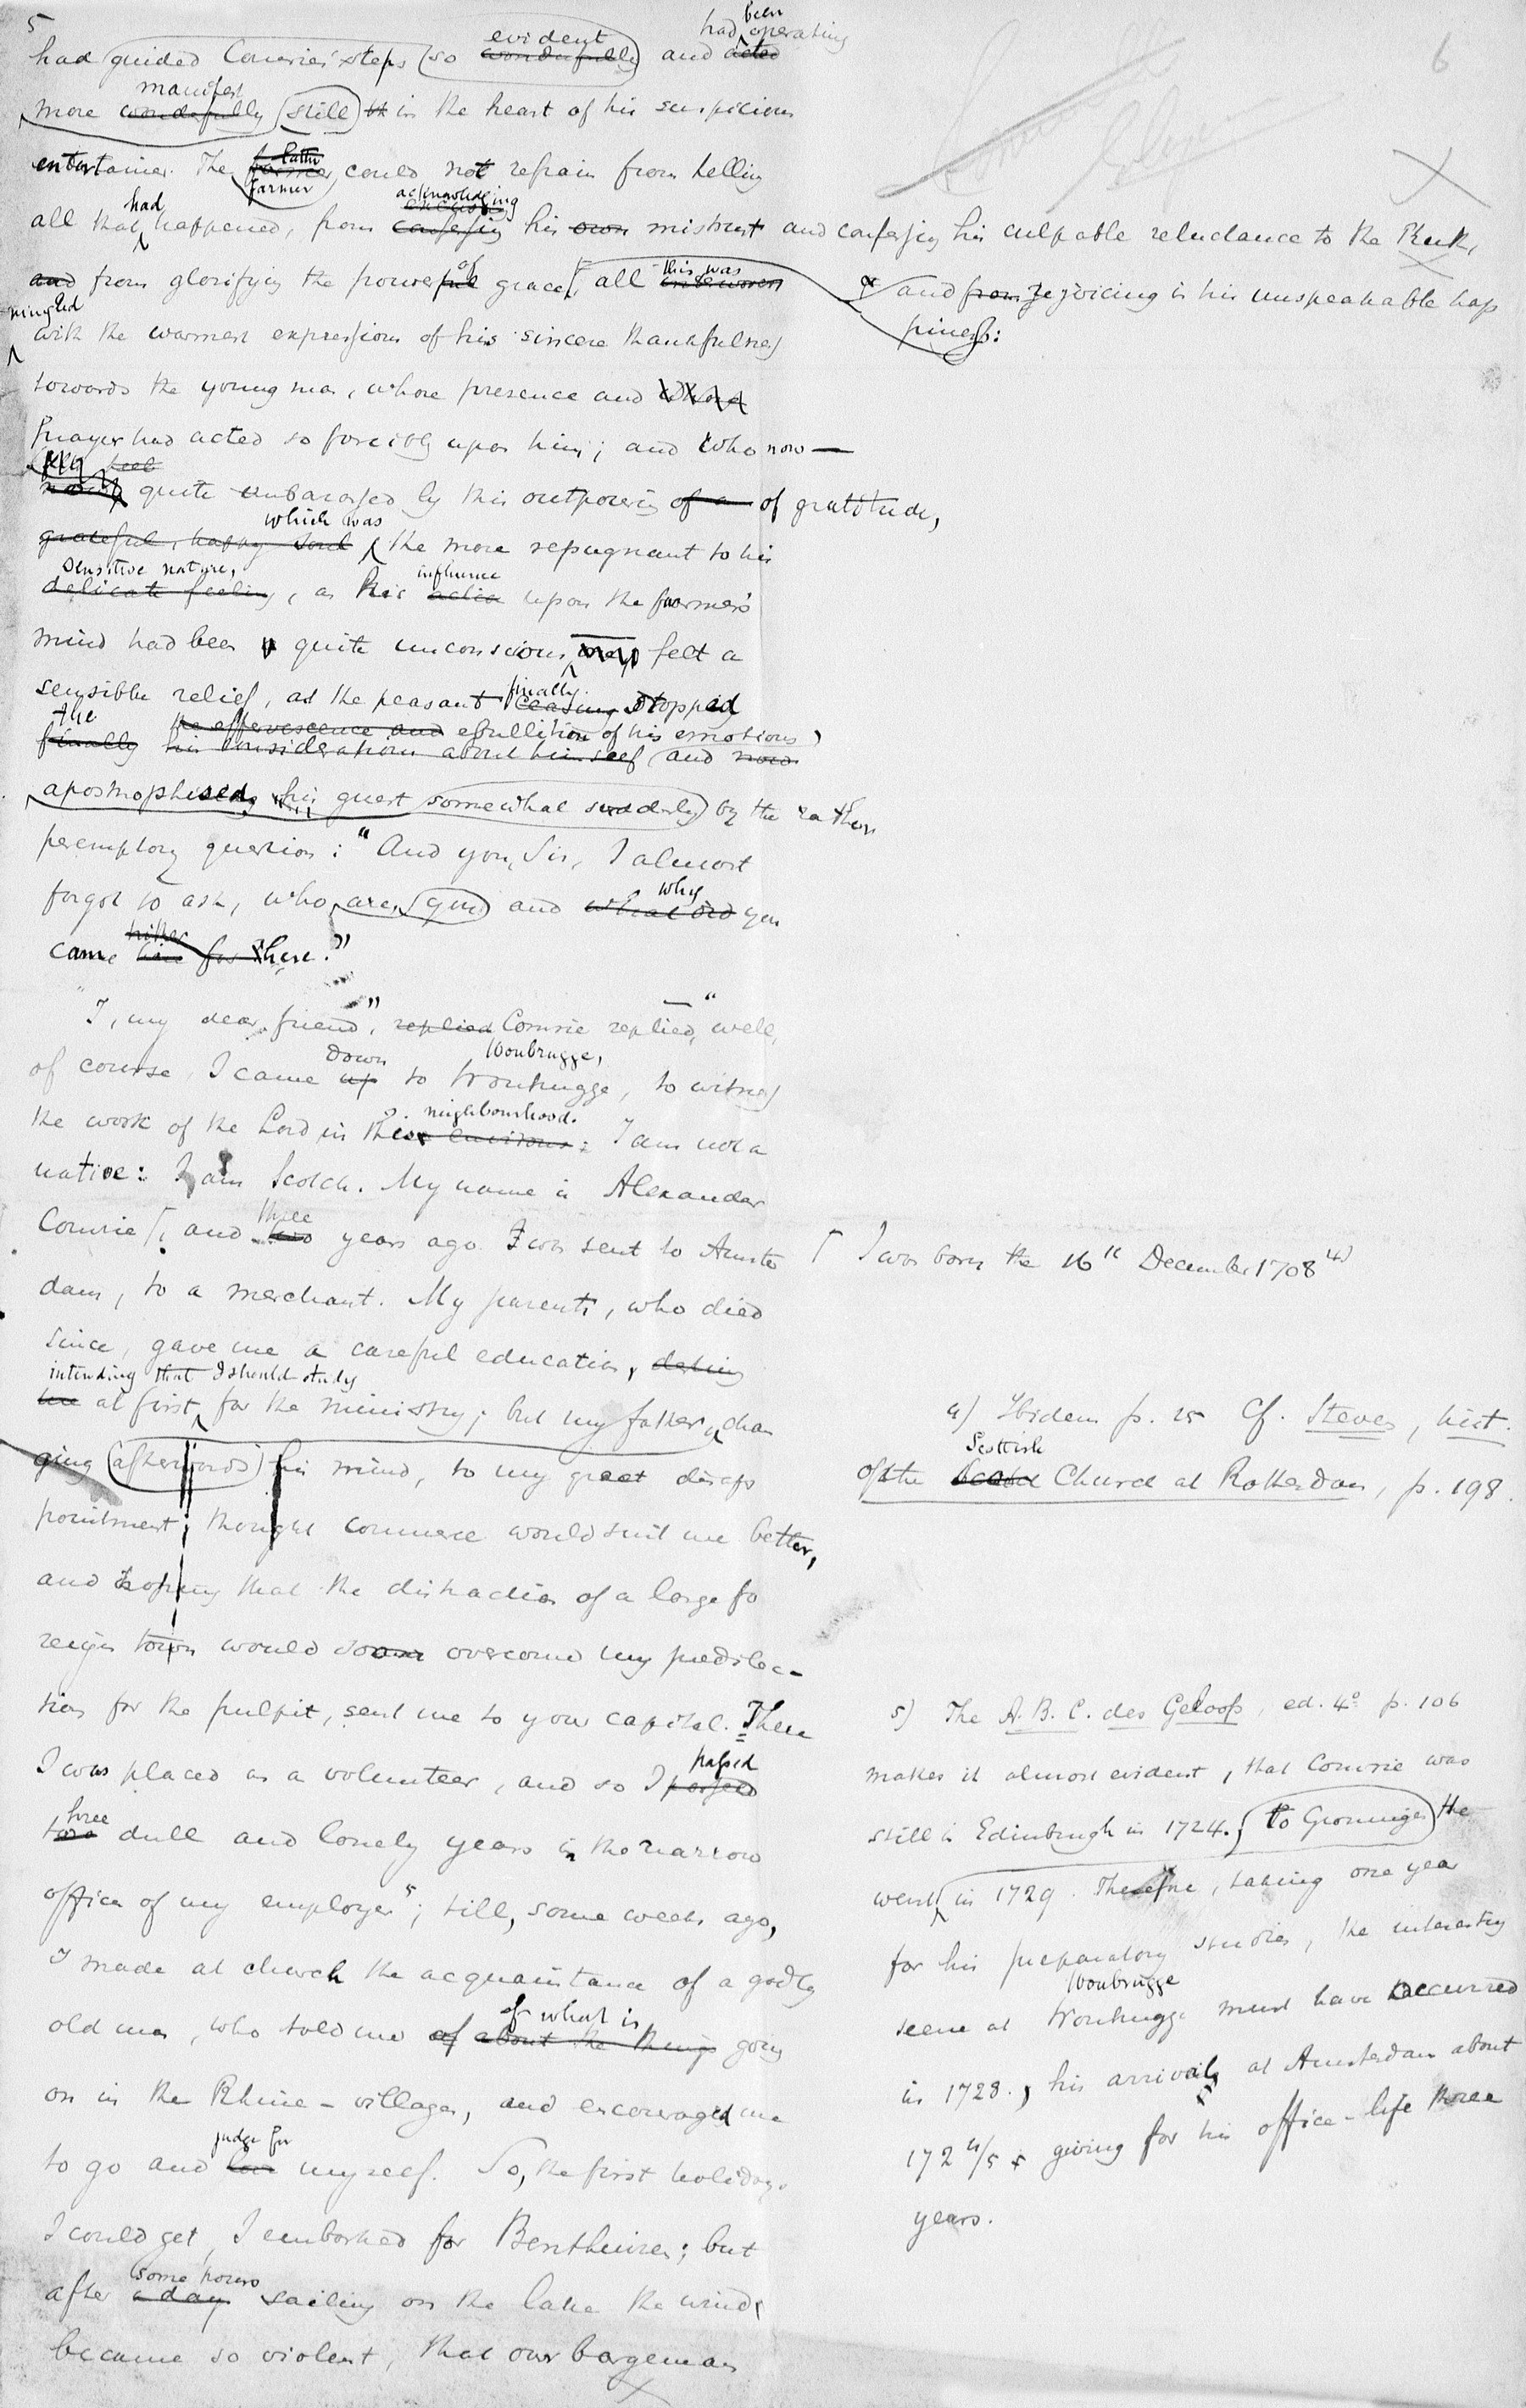 5
6
evident had been operating
had guided Comries' steps (so wonderfully) and acted
manifest
more wonderfully (still) in the heart of his suspicious
entertainer. The farmer could not refrain from telling
farmer
had acknowledging
all that happened, from confessing his own mistrust and confessing his culpable reluctance to the
this was
and from glorifying the powerful of grace, all interwoven
and from rejoicing in his unspeakable hap
piness:
mingled
with the warmest expressions of his sincere thankfulness
towards the young man, whose presence and whose
prayer had acted so forcibly upon him; and who now —
quite embarassed by this outpouring of a of gratitude,
which was
grateful, happy soul the more repugnant to his
sensitive nature, influence
delicate feeling, as his action upon the farmer's
mind had been quite unconscious, felt a
finally
sensible relief, as the peasant ceasing stopped
the the effervescence and ebullition of his emotions,
finally his considerations about himself and now
apostrophised his guest (somewhat suddenly) by the rather
peremptory question: "And you, Sir, I almost
why
forgot to ask, who are (you) and what did you
hither
came here for here?"
"I, my dear friend", replied Comrie replied, — "well,
down Woubrugge,
of course, I came up to Woubrugge, to witness
neighbourhood.
the work of the Lord in these environs: I am not a
native: I am Scotch. My name is Alexander
three
Comrie, and two years ago I was sent to Amster
I was born the 16th December 1708 4)
dam, to a merchant. My parents, who died
since, gave me a careful education, destining
intending that I should study
me at first, for the ministry; but my father, chan
ging (afterwards) his mind, to my great disap
pointment; thought commerce would suit me better,
and hoping that the distraction of a large fo
reign town would soon overcome my predilec-
tion for the pulpit, sent me to your capital. There
passed
I was placed as a volunteer, and so I passed
three
two dull and lonely years in the narrow
office of my employer 5; till, some weeks ago,
I made at church the acquaintance of a godly
of what is
old man, who told me of about the things going
on in the Rhine-villages, and encouraged me
judge for
to go and see myself. So, the first holidays
I could get, I embarked for Benthuizen; but
some hours
after a day sailing on the lake the winds
became so violent, that our bargeman
4) Ibidem p. 25 Cf. Steven, hist.
Scottish
of the Scotch Church at Rotterdam, p. 198.
5) The A. B. C. des Geloofs, ed. 4o p. 106
makes it almost evident, that Comrie was
still in Edinburgh in 1724; (to Groningen) He
went in 1729. Therefore, taking one year
for his preparatory studies, the interesting
Woubrugge
scene at Woubrugge must have occurred
in 1728., his arrival at Amsterdam about
1724/5 giving for his office-life three
years.